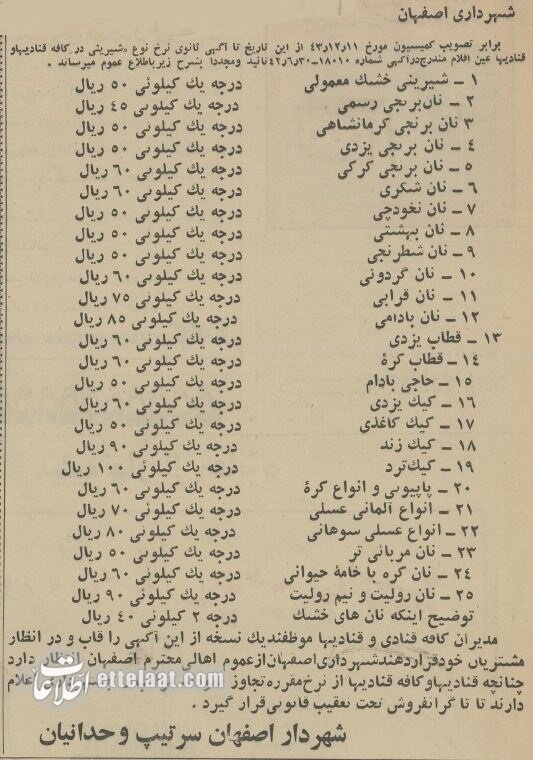 شهرداری اصفهان
برابر تصویب کمیسیون مورخ ۴۳٫۱۲٫۱۱ از این تاریخ تا آگهی ثانوی نرخ نوع شیرینی در کافه قنادیهاو
قنادیها عین اقلام مندرج درآگهی شماره ۱۸۰۱۰-۴۲٫۶٫۳۰ تائید ومجددا بشرح زیرباطلاع عموم میرساند .
۱ – شیرینی خشك معمولی درجه یك کیلوئی ۵۰ ریال
۲ – نان برنجی رسمی درجه یك کیلوئی ۴۵ ریال
۳ نان برنجی کرمانشاهی درجه یك کیلوئی ۵۰ ریال
۴ – نان برنجی یزدی درجه یك کیلوئی ۵۰ ریال
۵ – نان برنجی کرکی درجه یك کیلوئی ۶۰ ریال
۶ – نان شکری درجه یك کیلوئی ۶۰ ریال
۷ – نان نخودچی درجه یك کیلوئی ۵۰ ریال
۸ – نان بهشتی درجه یك کیلوئی ۵۰ ریال
۹ – نان شطرنجی درجه یك کیلوئی ۵۰ ریال
۱۰ – نان گردوئی درجه یك کیلوئی ۶۰ ریال
۱۱ – نان قرابی درجه یك کیلوئی ۷۵ ریال
۱۲ – نان بادامی درجه یك کیلوئی ۸۵ ریال
۱۳ – قطاب یزدی درجه یك کیلوئی ۶۰ ریال
۱۴ – قطاب کرۀ درجه یك کیلوئی ۶۰ ریال
۱۵ – حاجی بادام درجه یك کیلوئی ۵۰ ریال
۱۶ – کیك یزدی درجه یك کیلوئی ۶۰ ریال
۱۷ – کیك کاغذی درجه یك کیلوئی ۵۰ ریال
۱۸ – کیك زند درجه یك کیلوئی ۹۰ ریال
۱۹ – کیك ترد درجه یك کیلوئی ۱۰۰ ریال
۲۰ – پاپیونی و انواع کرۀ درجه یك کیلوئی ۶۰ ریال
۲۱ – انواع آلمانی عسلی درجه یك کیلوئی ۷۰ ریال
۲۲ – انواع عسلی سوهانی درجه یك کیلوئی ۸۰ ریال
۲۳ – نان مربائی تر درجه یك کیلوئی ۵۰ ریال
۲۴ – نان کره با خامۀ حیوانی درجه یك کیلوئی ۶۰ ریال
۲۵ – نان رولیت و نیم رولیت درجه یك کیلوئی ۹۰ ریال
توضیح اینکه نان های خشك درجه ۲ کیلوئی ۴۰ ریال
مدیران کافه قنادی و قنادیها موظفندیك نسخه از این آگهی را قاب و در انظار
مشتریان خودقراردهندشهرداری اصفهان ازعموم اهالی محترم اصفهان انتظار دارد
چنانچه قنادیهاوکافه قنادیها از نرخ مقرره تجاوز اعلام
دارند تا تا گرانفروش تحت تعقیب قانونی قرار گیرد .
شهردار اصفهان سرتیپ وحدانیان
اطلاعات ettelaat.com